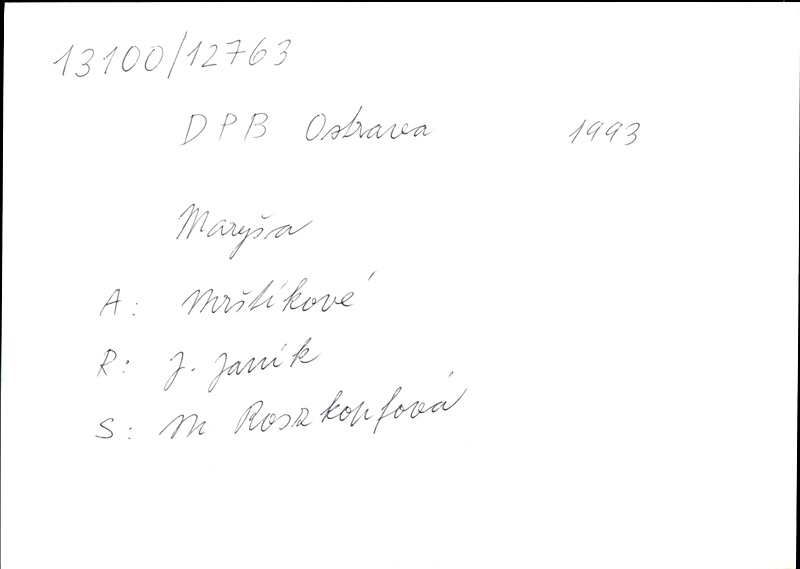 13100/12763
DPB Ostrava 1993
Maryša
A: Mrštíkové
R: J. Janík
S: M Roszkopfová